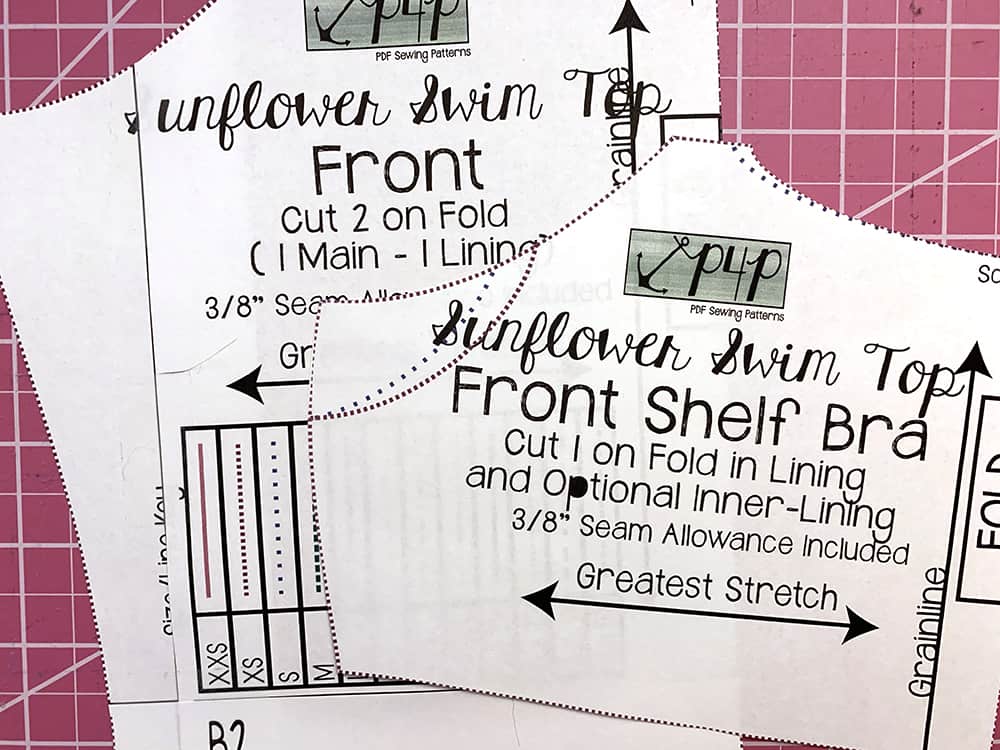 p4p
PDF Sewing Patterns
unflower Swim Top
Front
Cut 2 on Fold
( 1 Main - 1 Lining)
3/8” Seam
Gr
rainline
Size/Line Key
XXS
XS
S
M
B2
p4p
PDF Sewing Patterns
Sunflower Swim Top
Front Shelf Bra
Cut 1 on Fold in Lining
and Optional Inner-Lining
3/8” Seam Allowance Included
Greatest Stretch
Grainline
FOLD